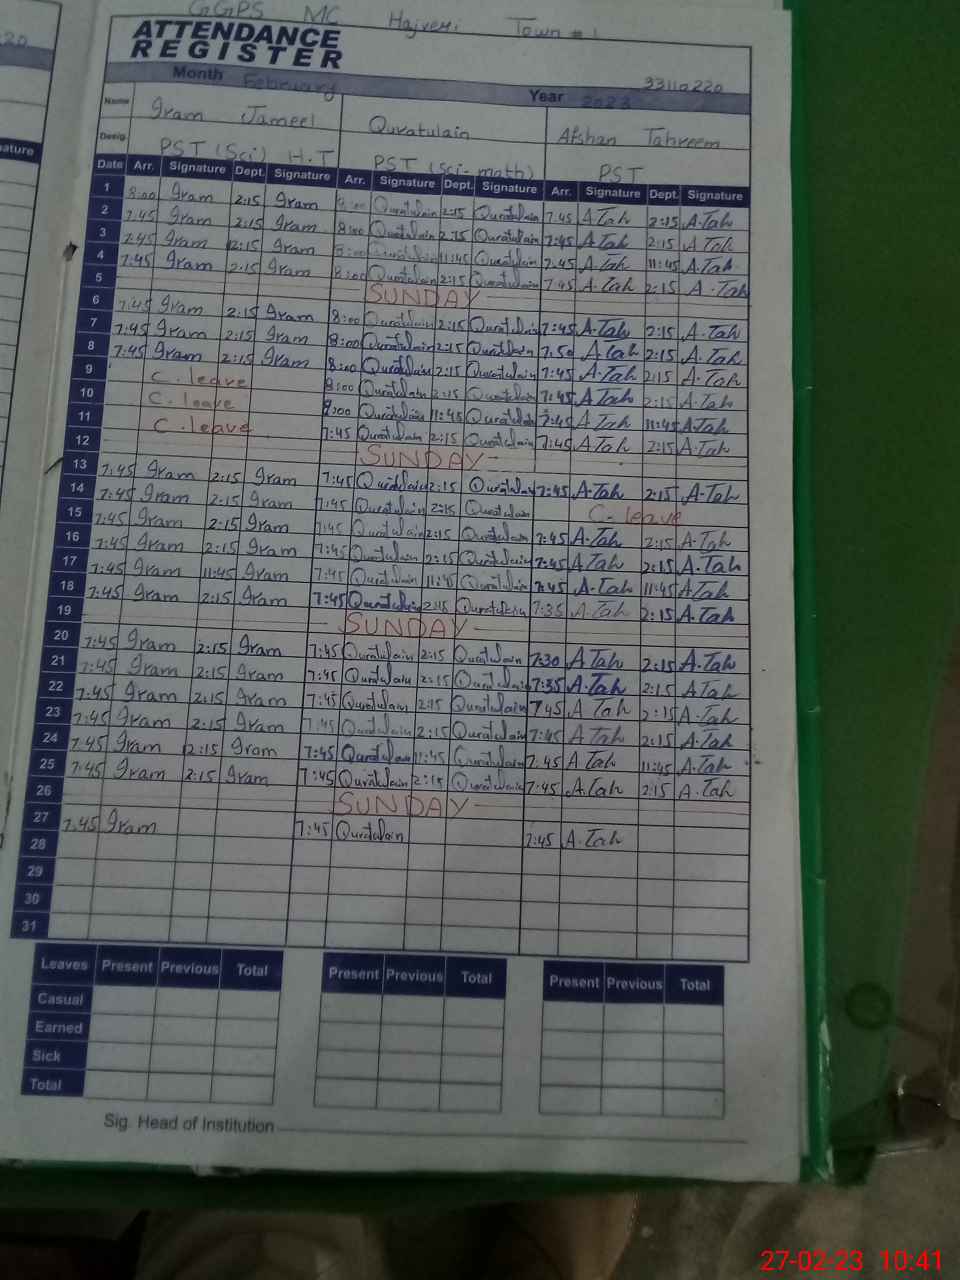 GGPS MC Hajveri Town # 1
ATTENDANCE
REGISTER
33110220
Month February Year 2023
Name Iram Jameel Quratulain Afshan Tahreem
Desig. PST (Sci) H.T PST (Sci-math) PST
Date Arr. Signature Dept. Signature Arr. Signature Dept. Signature Arr. Signature Dept. Signature
1 8:00 Iram 2:15 Iram Quratulain 2:15 Quratulain 7:45 A Tah 2:15 A.Tah
2 7:45 Iram 2:15 Iram 8:00 Quratulain 2:15 Quratulain 7:45 A Tah 2:15 A Tah
3 7:45 Iram 2:15 Iram 8:00 Quratulain 11:45 Quratulain 7:45 A Tah 11:45 A.Tah
4 7:45 Iram 2:15 Iram 8:00 Quratulain 2:15 Quratulain 7:45 A Tah 2:15 A.Tah
5 SUNDAY
6 7:45 Iram 2:15 Iram 8:00 Quratulain 2:15 Quratulain 7:45 A.Tah 2:15 A.Tah
7 7:45 Iram 2:15 Iram 8:00 Quratulain 2:15 Quratulain 7:50 A Tah 2:15 A.Tah
8 7:45 Iram 2:15 Iram 8:00 Quratulain 2:15 Quratulain 7:45 A.Tah 2:15 A.Tah
9 C.leave 8:00 Quratulain 2:15 Quratulain 7:45 A Tah 2:15 A.Tah
10 C.leave 8:00 Quratulain 11:45 Quratulain 7:45 A Tah 11:45 A.Tah
11 C.leave 7:45 Quratulain 2:15 Quratulain 7:45 A Tah 2:15 A.Tah
12 SUNDAY
13 7:45 Iram 2:15 Iram 7:45 Quratulain 2:15 Quratulain 7:45 A.Tah 2:15 A.Tah
14 7:45 Iram 2:15 Iram 7:45 Quratulain 2:15 Quratulain C.leave
15 7:45 Iram 2:15 Iram 7:45 Quratulain 2:15 Quratulain 7:45 A.Tah 2:15 A.Tah
16 7:45 Iram 2:15 Iram 7:45 Quratulain 2:15 Quratulain 7:45 A Tah 2:15 A.Tah
17 7:45 Iram 11:45 Iram 7:45 Quratulain 11:45 Quratulain 7:45 A.Tah 11:45 A Tah
18 7:45 Iram 2:15 Iram 7:45 Quratulain 2:15 Quratulain 7:35 A Tah 2:15 A.Tah
19 SUNDAY
20 7:45 Iram 2:15 Iram 7:45 Quratulain 2:15 Quratulain 7:30 A Tah 2:15 A.Tah
21 7:45 Iram 2:15 Iram 7:45 Quratulain 2:15 Quratulain 7:35 A.Tah 2:15 A Tah
22 7:45 Iram 2:15 Iram 7:45 Quratulain 2:15 Quratulain 7:45 A Tah 2:15 A.Tah
23 7:45 Iram 2:15 Iram 7:45 Quratulain 2:15 Quratulain 7:45 A Tah 2:15 A.Tah
24 7:45 Iram 2:15 Iram 7:45 Quratulain 11:45 Quratulain 7:45 A Tah 11:45 A.Tah
25 7:45 Iram 2:15 Iram 7:45 Quratulain 2:15 Quratulain 7:45 A.Tah 2:15 A.Tah
26 SUNDAY
27 7:45 Iram 7:45 Quratulain 7:45 A.Tah
28
29
30
31
Leaves Present Previous Total Present Previous Total Present Previous Total
Casual
Earned
Sick
Total
Sig. Head of Institution
27-02-23 10:41